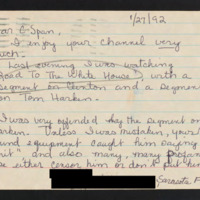 1/27/92
ear C-Span,
I enjoy your channel very
uch.
Last evening I was watching
Road To The White House, with a
segment on Clinton and a segment
on Tom Harkin.
I was very offended by the segment on
arkin. Unless I was mistaken, your
und equipment caught him saying
it. and also many, many profan
se either censor him or don't put him
Sarasota F